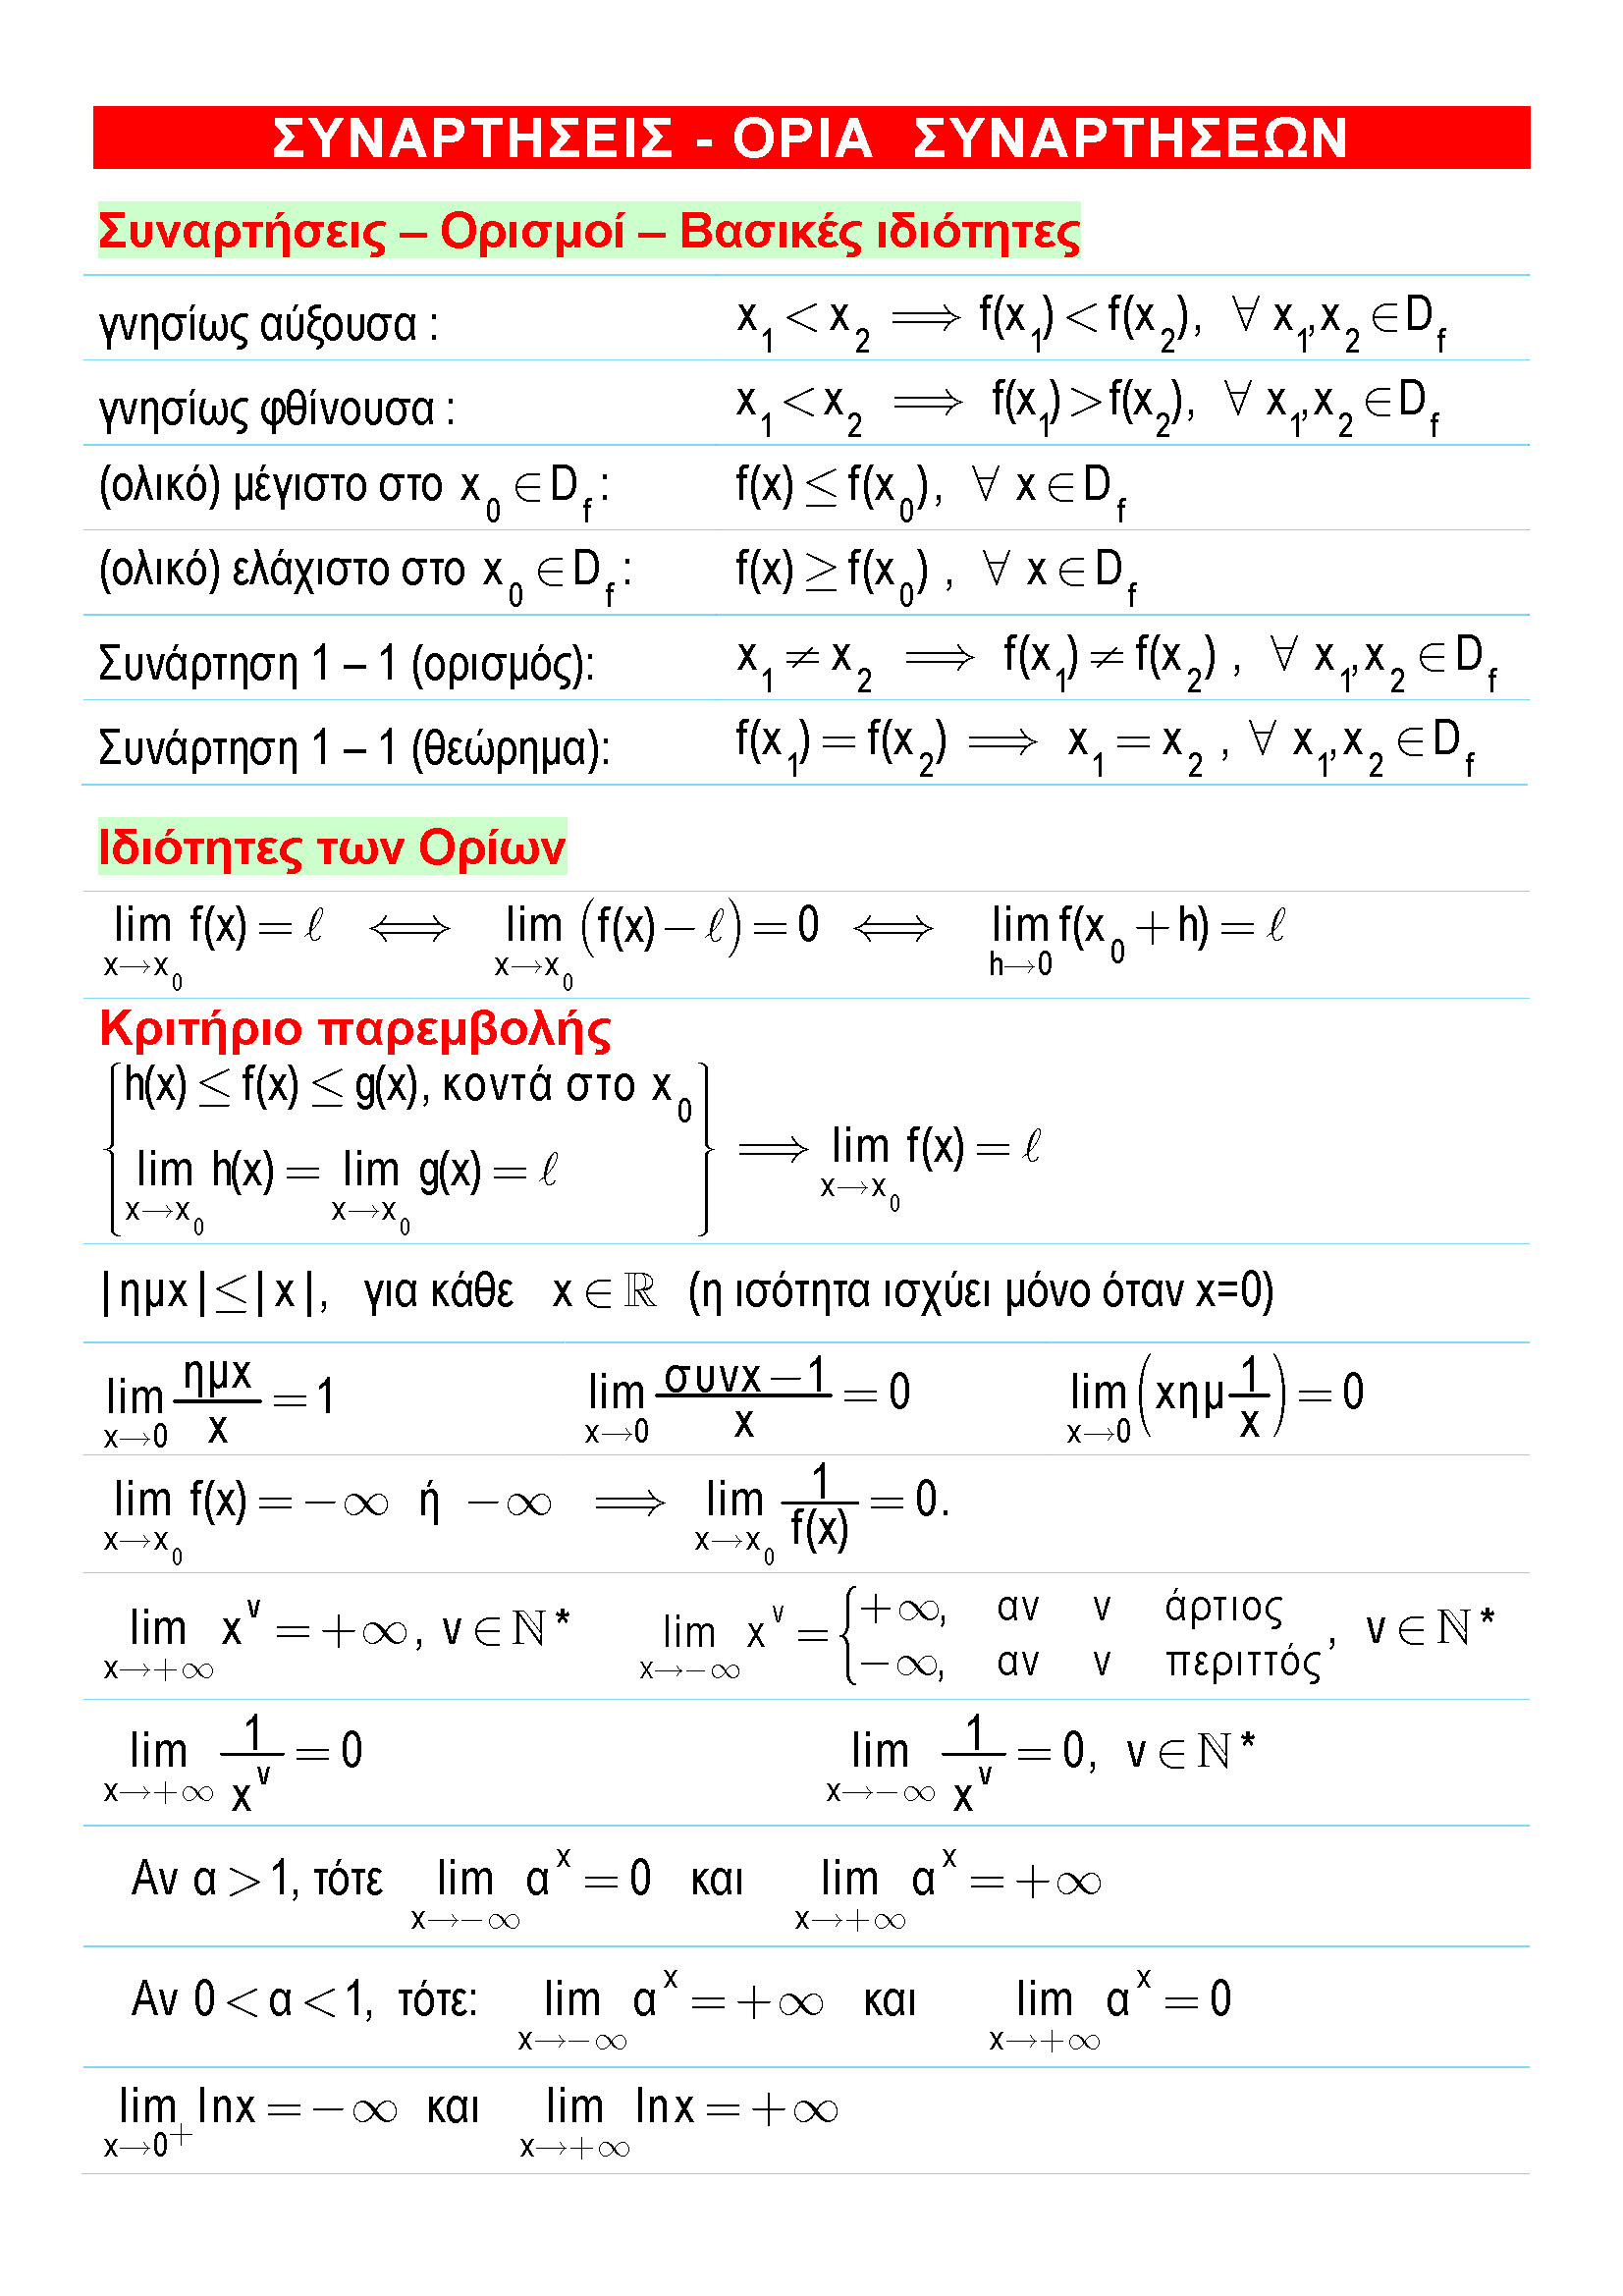 ΣΥΝΑΡΤΗΣΕΙΣ - ΟΡΙΑ ΣΥΝΑΡΤΗΣΕΩΝ
Συναρτήσεις – Ορισμοί – Βασικές ιδιότητες
γνησίως αύξουσα : x₁ < x₂ ⟹ f(x₁) < f(x₂), ∀ x₁,x₂ ∈ D_f
γνησίως φθίνουσα : x₁ < x₂ ⟹ f(x₁) > f(x₂), ∀ x₁,x₂ ∈ D_f
(ολικό) μέγιστο στο x₀ ∈ D_f : f(x) ≤ f(x₀), ∀ x ∈ D_f
(ολικό) ελάχιστο στο x₀ ∈ D_f : f(x) ≥ f(x₀) , ∀ x ∈ D_f
Συνάρτηση 1 – 1 (ορισμός): x₁ ≠ x₂ ⟹ f(x₁) ≠ f(x₂) , ∀ x₁,x₂ ∈ D_f
Συνάρτηση 1 – 1 (θεώρημα): f(x₁) = f(x₂) ⟹ x₁ = x₂ , ∀ x₁,x₂ ∈ D_f
Ιδιότητες των Ορίων
lim_{x→x₀} f(x) = ℓ ⟺ lim_{x→x₀} (f(x) − ℓ) = 0 ⟺ lim_{h→0} f(x₀ + h) = ℓ
Κριτήριο παρεμβολής
{h(x) ≤ f(x) ≤ g(x), κοντά στο x₀
lim_{x→x₀} h(x) = lim_{x→x₀} g(x) = ℓ} ⟹ lim_{x→x₀} f(x) = ℓ
|ημx| ≤ |x|, για κάθε x ∈ ℝ (η ισότητα ισχύει μόνο όταν x=0)
lim_{x→0} ημx/x = 1 lim_{x→0} (συνx − 1)/x = 0 lim_{x→0} (xημ 1/x) = 0
lim_{x→x₀} f(x) = −∞ ή −∞ ⟹ lim_{x→x₀} 1/f(x) = 0.
lim_{x→+∞} x^ν = +∞, ν ∈ ℕ* lim_{x→−∞} x^ν = {+∞, αν ν άρτιος
−∞, αν ν περιττός , ν ∈ ℕ*
lim_{x→+∞} 1/x^ν = 0 lim_{x→−∞} 1/x^ν = 0, ν ∈ ℕ*
Αν α > 1, τότε lim_{x→−∞} α^x = 0 και lim_{x→+∞} α^x = +∞
Αν 0 < α < 1, τότε: lim_{x→−∞} α^x = +∞ και lim_{x→+∞} α^x = 0
lim_{x→0⁺} lnx = −∞ και lim_{x→+∞} lnx = +∞